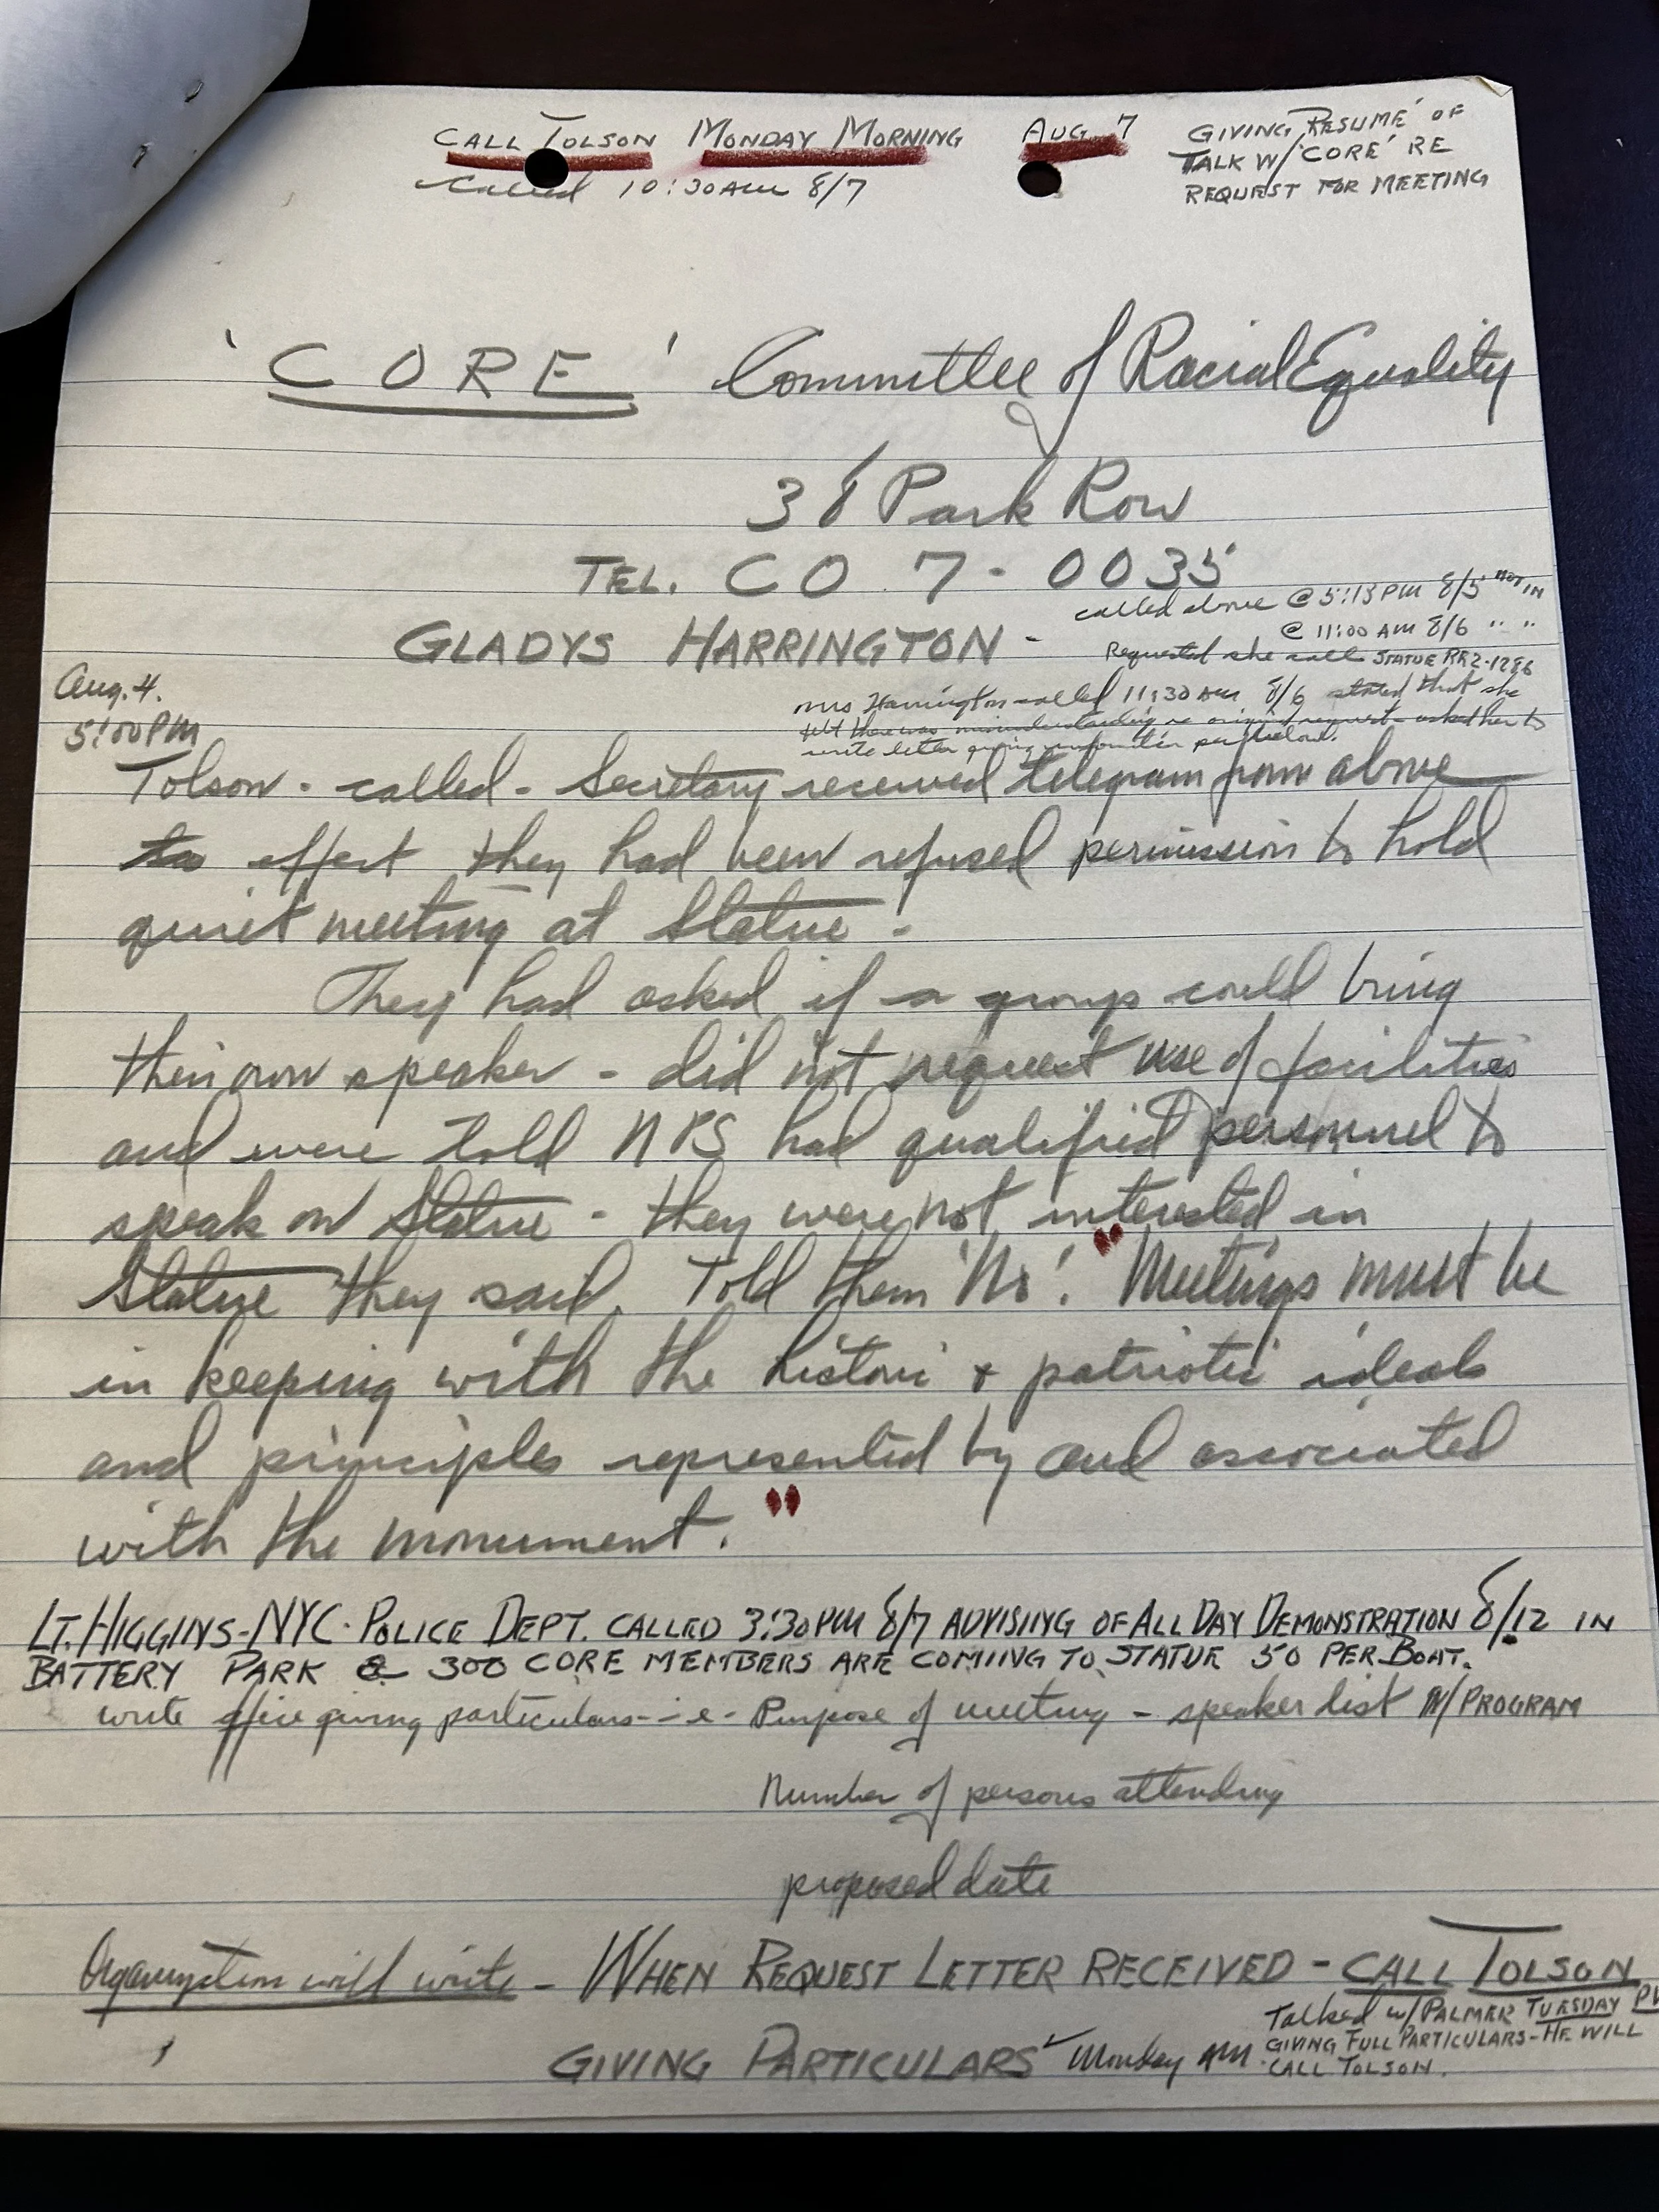 CALL TOLSON MONDAY MORNING AUG. 7
Called 10:30 AM 8/7
GIVING RESUMÉ OF
TALK W/ 'CORE' RE
REQUEST FOR MEETING
'CORE' Committee of Racial Equality
38 Park Row
TEL. CO 7-0035
called above @ 5:15 PM 8/5 NOT IN
@ 11:00 AM 8/6 " "
GLADYS HARRINGTON -
Requested she call STATUE RE2-1286
Aug. 4.
5:00 PM
Mrs Harrington called 11:30 AM 8/6 stated that she
felt there was misunderstanding re original request - asked her to
write letter giving information per below.
Tolson - called - Secretary received telegram from above
to effect they had been refused permission to hold
quiet meeting at Statue.
They had asked if a group could bring
their own speaker - did not request use of facilities
and were told NPS had qualified personnel to
speak on Statue - they were not interested in
Statue they said. Told them 'No'. "Meetings must be
in keeping with the historic & patriotic ideals
and principles represented by and associated
with the monument."
LT. HIGGINS - NYC. POLICE DEPT. CALLED 3:30 PM 8/7 ADVISIING OF ALL DAY DEMONSTRATION 8/12 IN
BATTERY PARK & 300 CORE MEMBERS ARE COMING TO STATUE 50 PER BOAT.
write office giving particulars - i-e- Purpose of meeting - speaker list W/ PROGRAM
Number of persons attending
proposed date
Organization will write - WHEN REQUEST LETTER RECEIVED - CALL TOLSON
GIVING PARTICULARS Monday AM
Talked w/ PALMER TUESDAY
GIVING FULL PARTICULARS - HE WILL
CALL TOLSON.